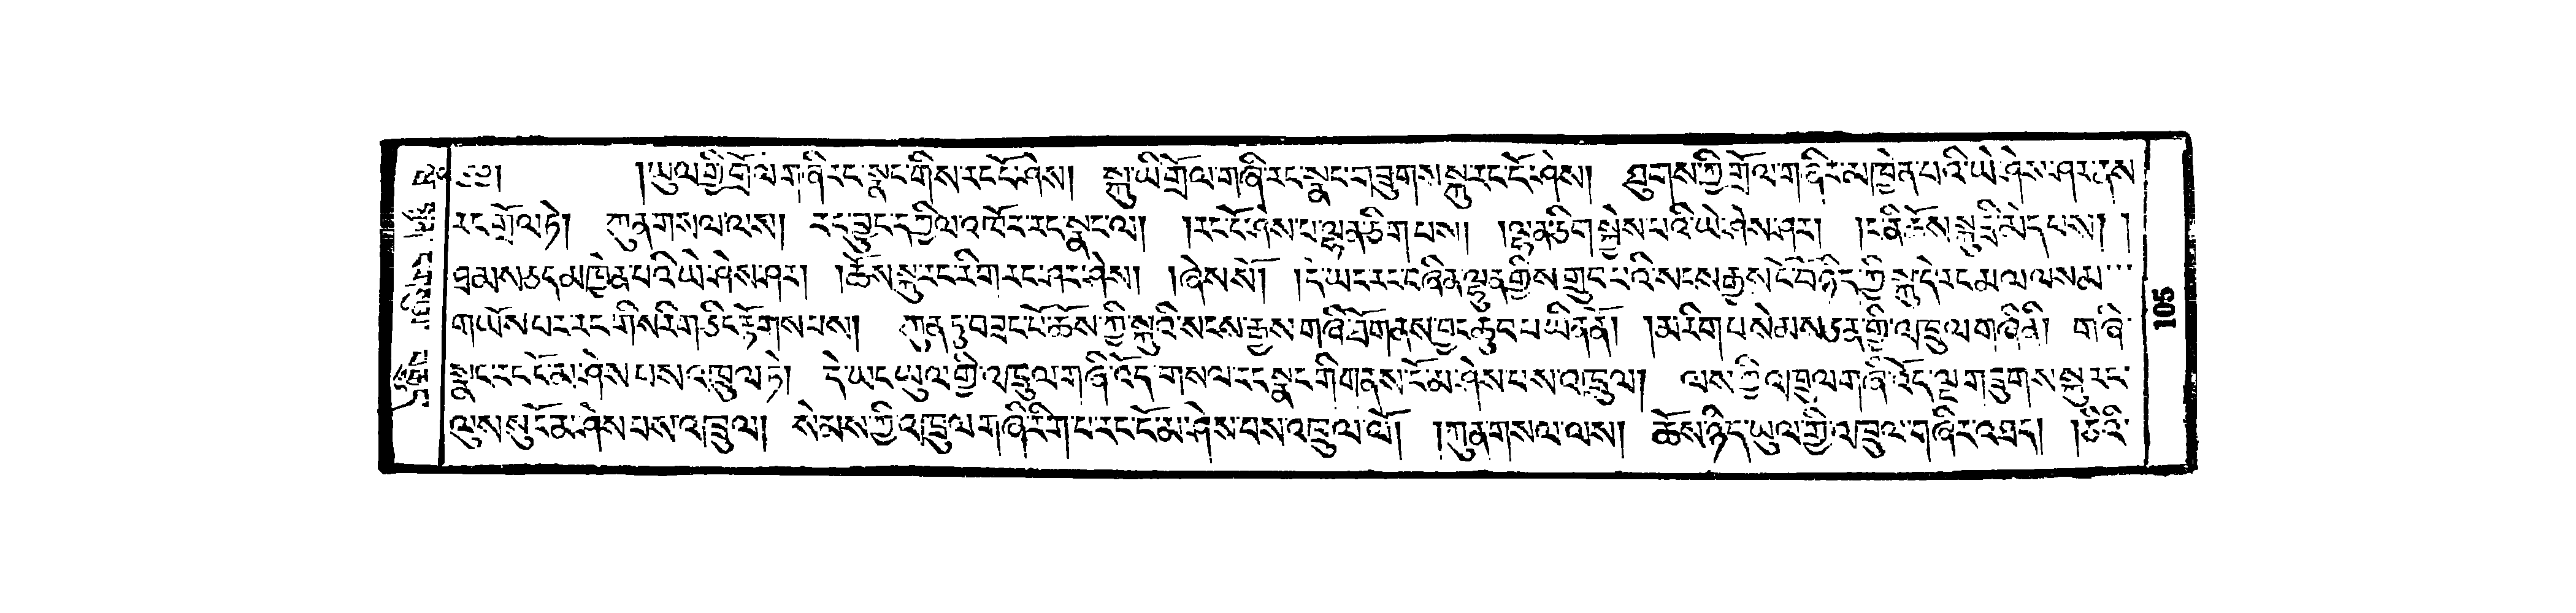 ༄༅། །ཡུལ་གྱི་གྲོལ་གཞི་རང་སྣང་གིས་རང་ངོ་ཤེས། སྐུ་ཡི་གྲོལ་གཞི་རང་སྣང་གཟུགས་སྐུ་རང་ངོ་ཤེས། ཐུགས་ཀྱི་གྲོལ་གཞིར་མཁྱེན་པའི་ཡེ་ཤེས་ཤར་ནས
རང་གྲོལ་ཏེ། ཀུན་གསལ་ལས། རང་བྱུང་དཀྱིལ་འཁོར་རང་སྣང་ལ། །རང་ངོ་ཤེས་པ་ལྷན་ཅིག་པས། །ལྷན་ཅིག་སྐྱེས་པའི་ཡེ་ཤེས་ཤར། །ང་ནི་ཆོས་སྐུ་དྲི་མེད་པས། །
ཐམས་ཅད་མཁྱེན་པའི་ཡེ་ཤེས་ཤར། །ཆོས་སྐུ་རང་རིག་རང་ཤར་ཤེས། །ཞེས་སོ། །དེ་ཡང་རང་བཞིན་ལྷུན་གྱིས་གྲུབ་པའི་སངས་རྒྱས་ངོ་བོ་ཉིད་ཀྱི་སྐུ་དེ་རང་མལ་ལས་མ་
གཡོས་པར་རང་གིས་རིག་ཅིང་རྟོགས་པས། ཀུན་ཏུ་བཟང་པོ་ཆོས་ཀྱི་སྐུའི་སངས་རྒྱས་གཞི་ཐོག་ནས་བྱང་ཆུབ་པ་ཡིན་ནོ། །མ་རིག་པ་སེམས་ཅན་གྱི་འཁྲུལ་གཞི་ནི། གཞི་
སྣང་རང་ངོ་མ་ཤེས་པས་འཁྲུལ་ཏེ། དེ་ཡང་ཡུལ་གྱི་འཁྲུལ་གཞི་འོད་གསལ་རང་སྣང་གི་གནས་ངོ་མ་ཤེས་པས་འཁྲུལ། ལས་ཀྱི་འཁྲུལ་གཞི་འོད་ལྔ་གཟུགས་སྐུ་རང་
ལུས་སུ་ངོ་མ་ཤེས་པས་འཁྲུལ། སེམས་ཀྱི་འཁྲུལ་གཞི་རིག་པ་རང་ངོ་མ་ཤེས་པས་འཁྲུལ་ལོ། །ཀུན་གསལ་ལས། ཆོས་ཉིད་ཡུལ་གྱི་འཁྲུལ་གཞིར་འཐད། །ཅིའི་
105